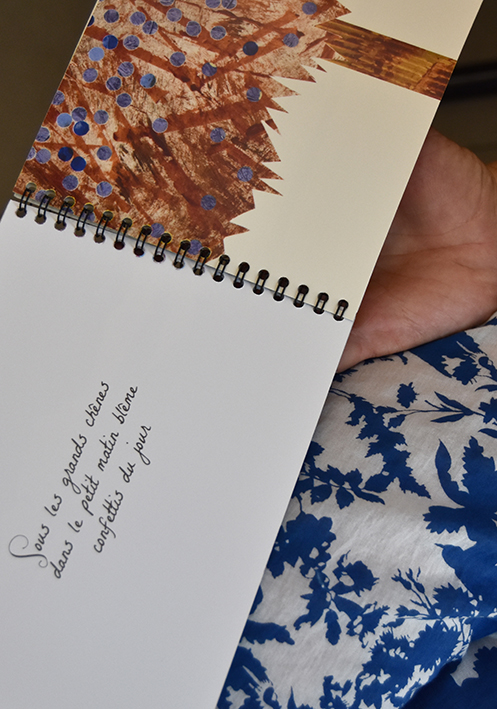 Sous les grands chênes
dans le petit matin blême
confettis du jour